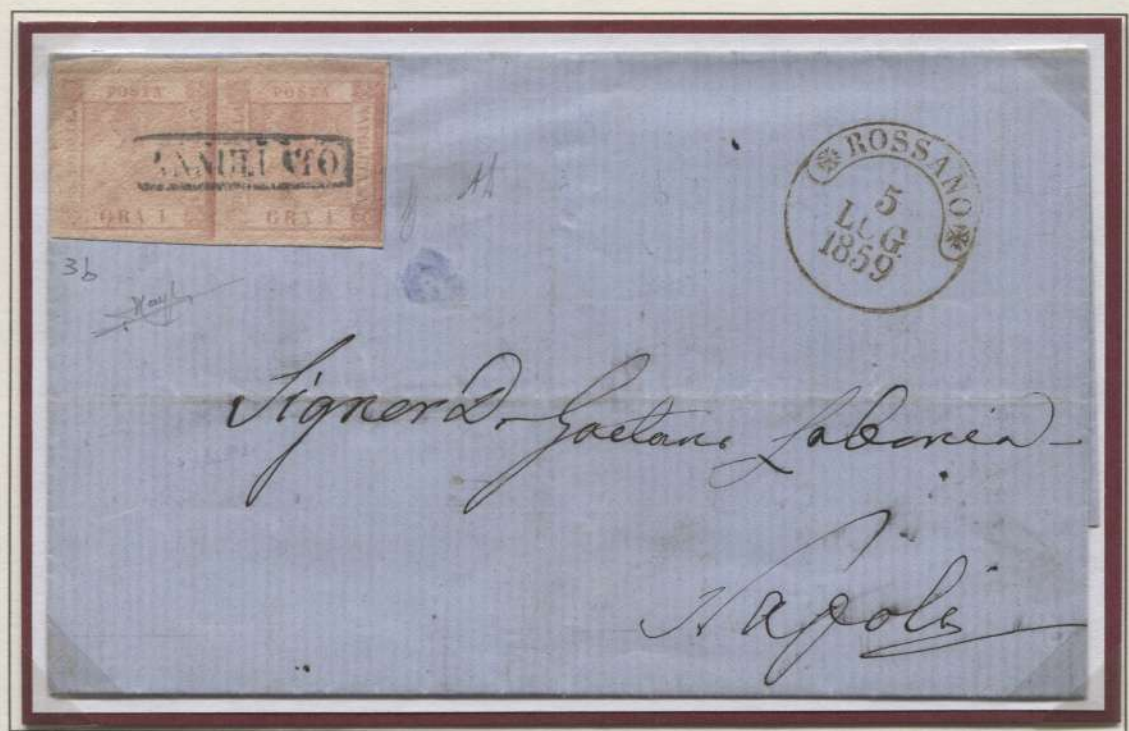 POSTA POSTA
ANNULLATO
GRA 1 GRA 1
3b
❋ ROSSANO ❋
5
LUG
1859
Signor D. Gaetano Labonia
Napoli